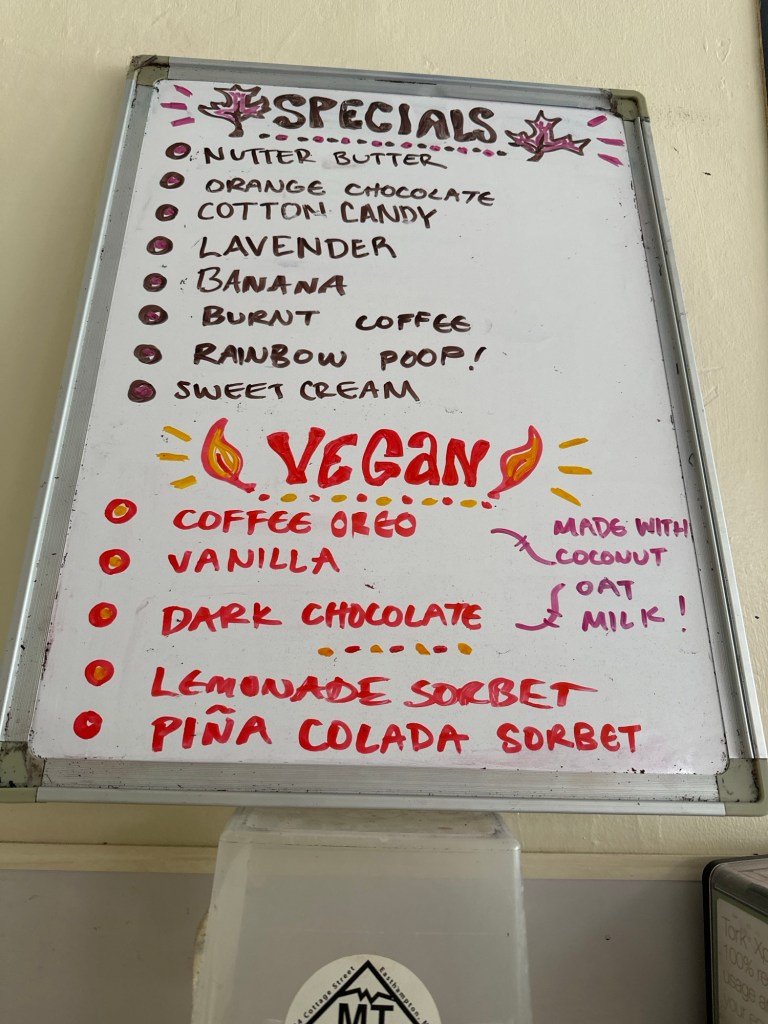 SPECIALS
NUTTER BUTTER
ORANGE CHOCOLATE
COTTON CANDY
LAVENDER
BANANA
BURNT COFFEE
RAINBOW POOP!
SWEET CREAM
VEGAN
COFFEE OREO
VANILLA
DARK CHOCOLATE
MADE WITH
COCONUT
OAT
MILK!
LEMONADE SORBET
PIÑA COLADA SORBET
Cottage Street
Easthampton,
MT
Tork
100%
usage
your